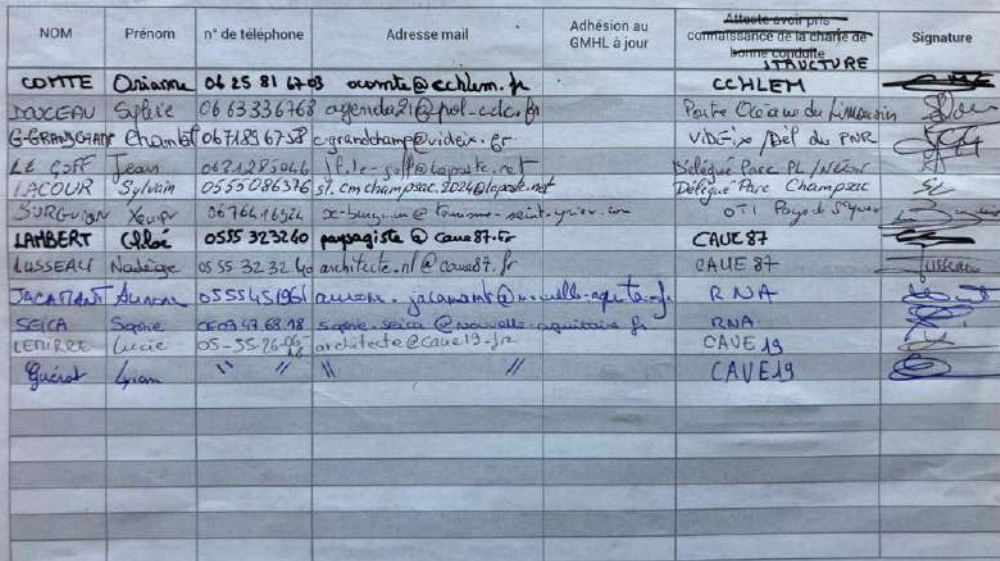 NOM Prénom n° de téléphone Adresse mail Adhésion au GMHL à jour Atteste avoir pris connaissance de la charte de bonne conduite STRUCTURE Signature
COMTE Orianne 06 25 81 67 03 ocomte@cchlem.fr CCHLEM
DOUCEAU Sylvie 06 63336768 agenda21@pol-cdc.fr Porte Océane du Limousin
G-GRANDCHAMP Chantal 0671896758 c.grandchamp@videix.fr VIDEIX / Dél du PNR
LE GOFF Jean jf.le-goff@laposte.net Délégué Parc PL /
LACOUR Sylvain 0555086376 st.cmchampsac.2024@laposte.net Délégué Parc Champsac
0676416524 OTI Pays de St Yrieix
LAMBERT Chloé 0555 323240 paysagiste@caue87.fr CAUE 87
LUSSEAU Nadège 05 55 32 32 40 architecte.nl@caue87.fr CAUE 87 Lusseau
JACAMANT Aurore 0555451961 aurore.jacamant@nouvelle-aquitaine.fr RNA
SEICA Sophie 0607 47.68.18 sophie.seica@nouvelle-aquitaine.fr RNA
Lucie 05-55-26-06- architecte@caue19.fr CAUE 19
Guérot " " " " CAUE19